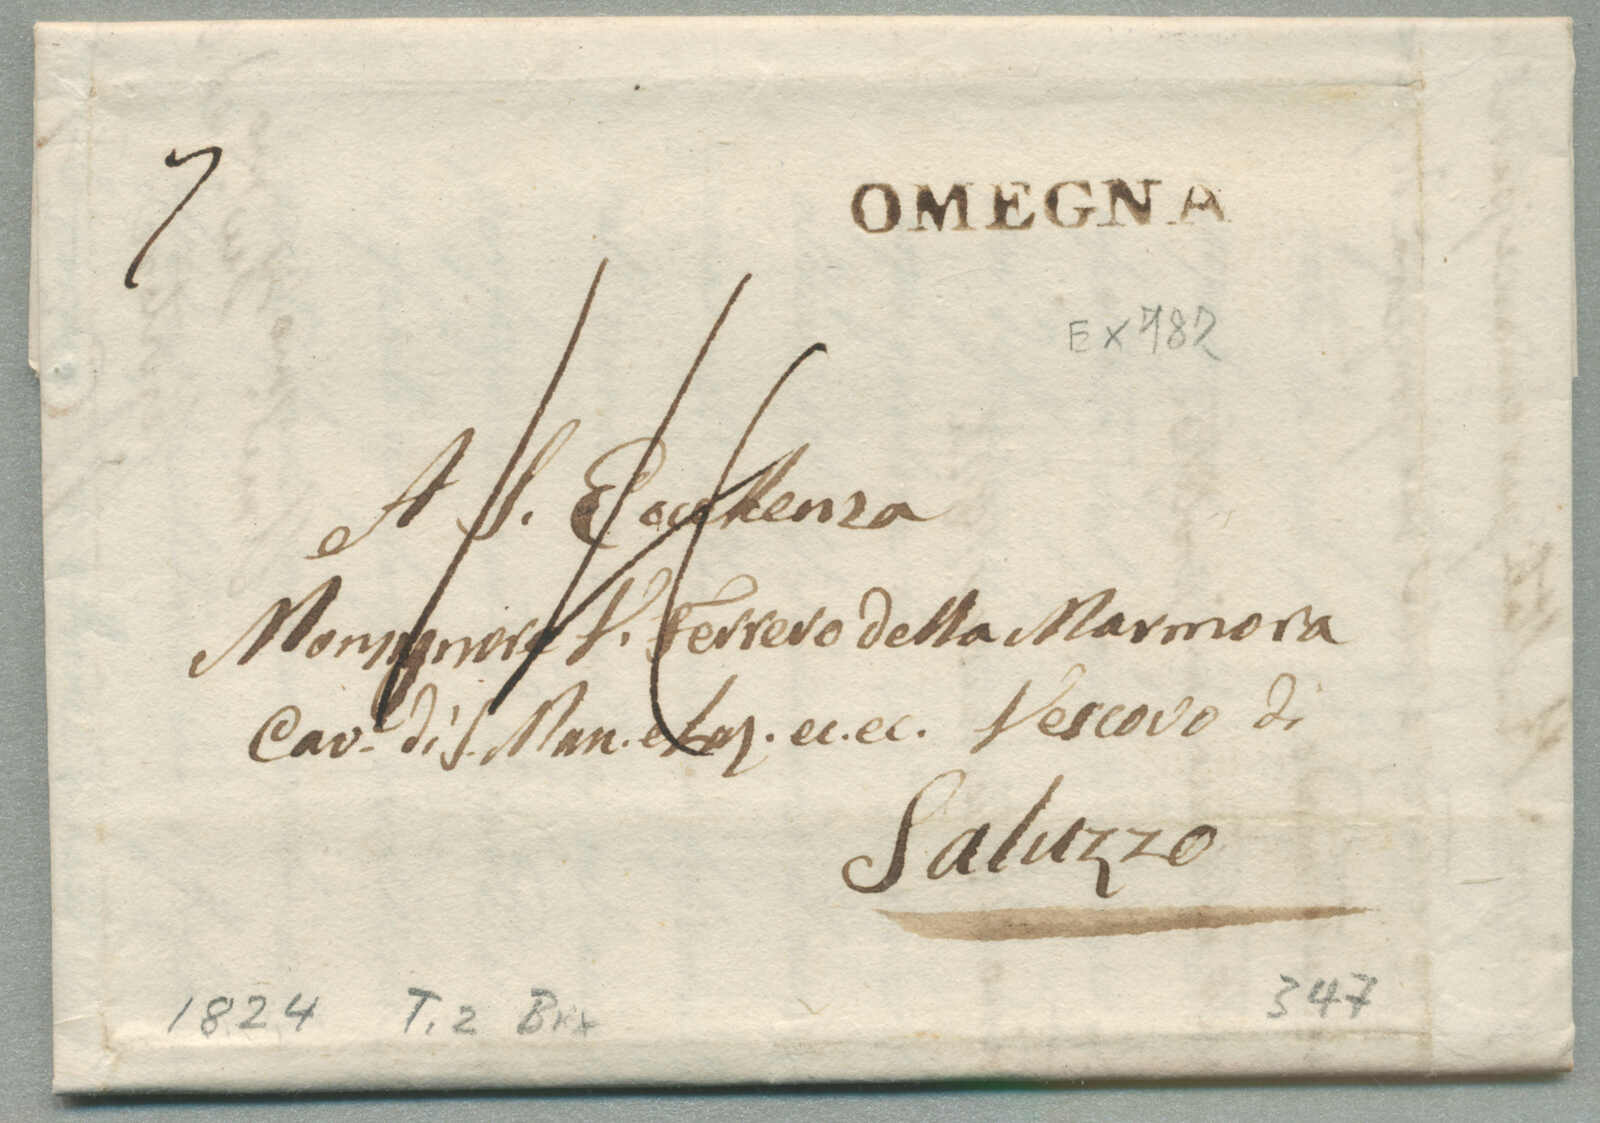 7
OMEGNA
EX 782
A S. Eccellenza
Monsignore V. Ferrero della Marmora
Cav. di S. Mau. e Laz. ec. ec. Vescovo di
Saluzzo
1824 T. 2
347